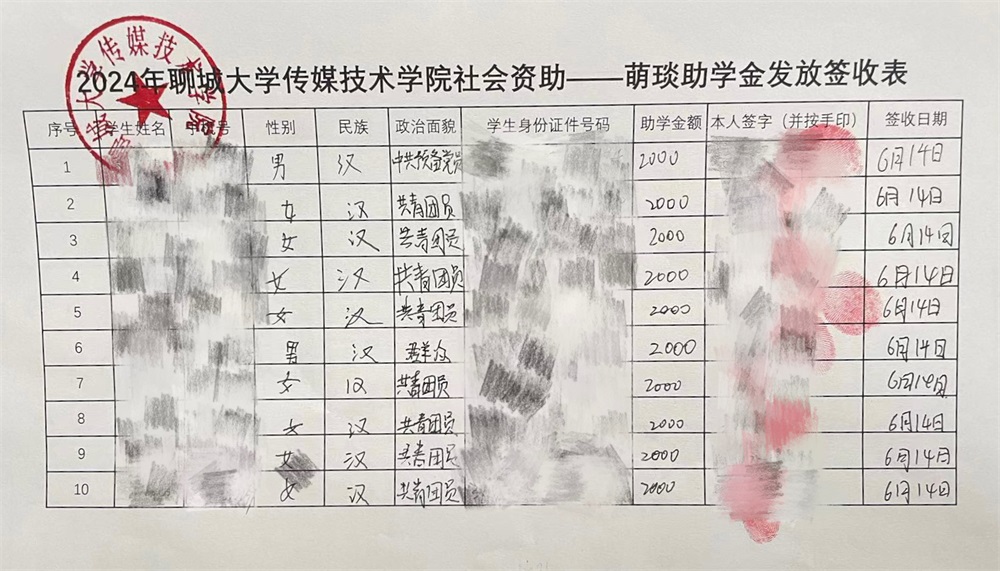 2024年聊城大学传媒技术学院社会资助——萌琰助学金发放签收表
大学传媒技术学
序号 学生姓名 性别 民族 政治面貌 学生身份证件号码 助学金额 本人签字（并按手印） 签收日期
1 男 汉 中共预备党员 2000 6月14日
2 女 汉 共青团员 2000 6月14日
3 女 汉 共青团员 2000 6月14日
4 女 汉 共青团员 2000 6月14日
5 女 汉 共青团员 2000 6月14日
6 男 汉 群众 2000 6月14日
7 女 汉 共青团员 2000 6月14日
8 女 汉 共青团员 2000 6月14日
9 女 汉 共青团员 2000 6月14日
10 女 汉 共青团员 2000 6月14日